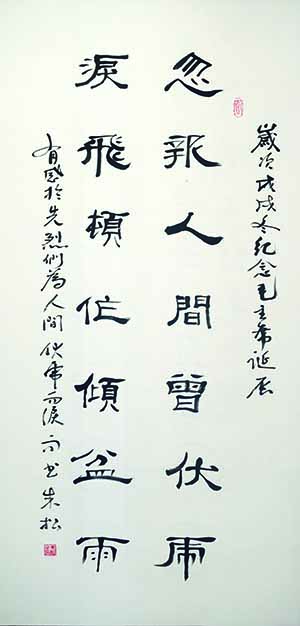 歲次戊戌冬紀念毛主席誕辰
忽報人間曾伏虎
淚飛頓作傾盆雨
有感於先烈們為人間伏虎而淚 而書 朱松